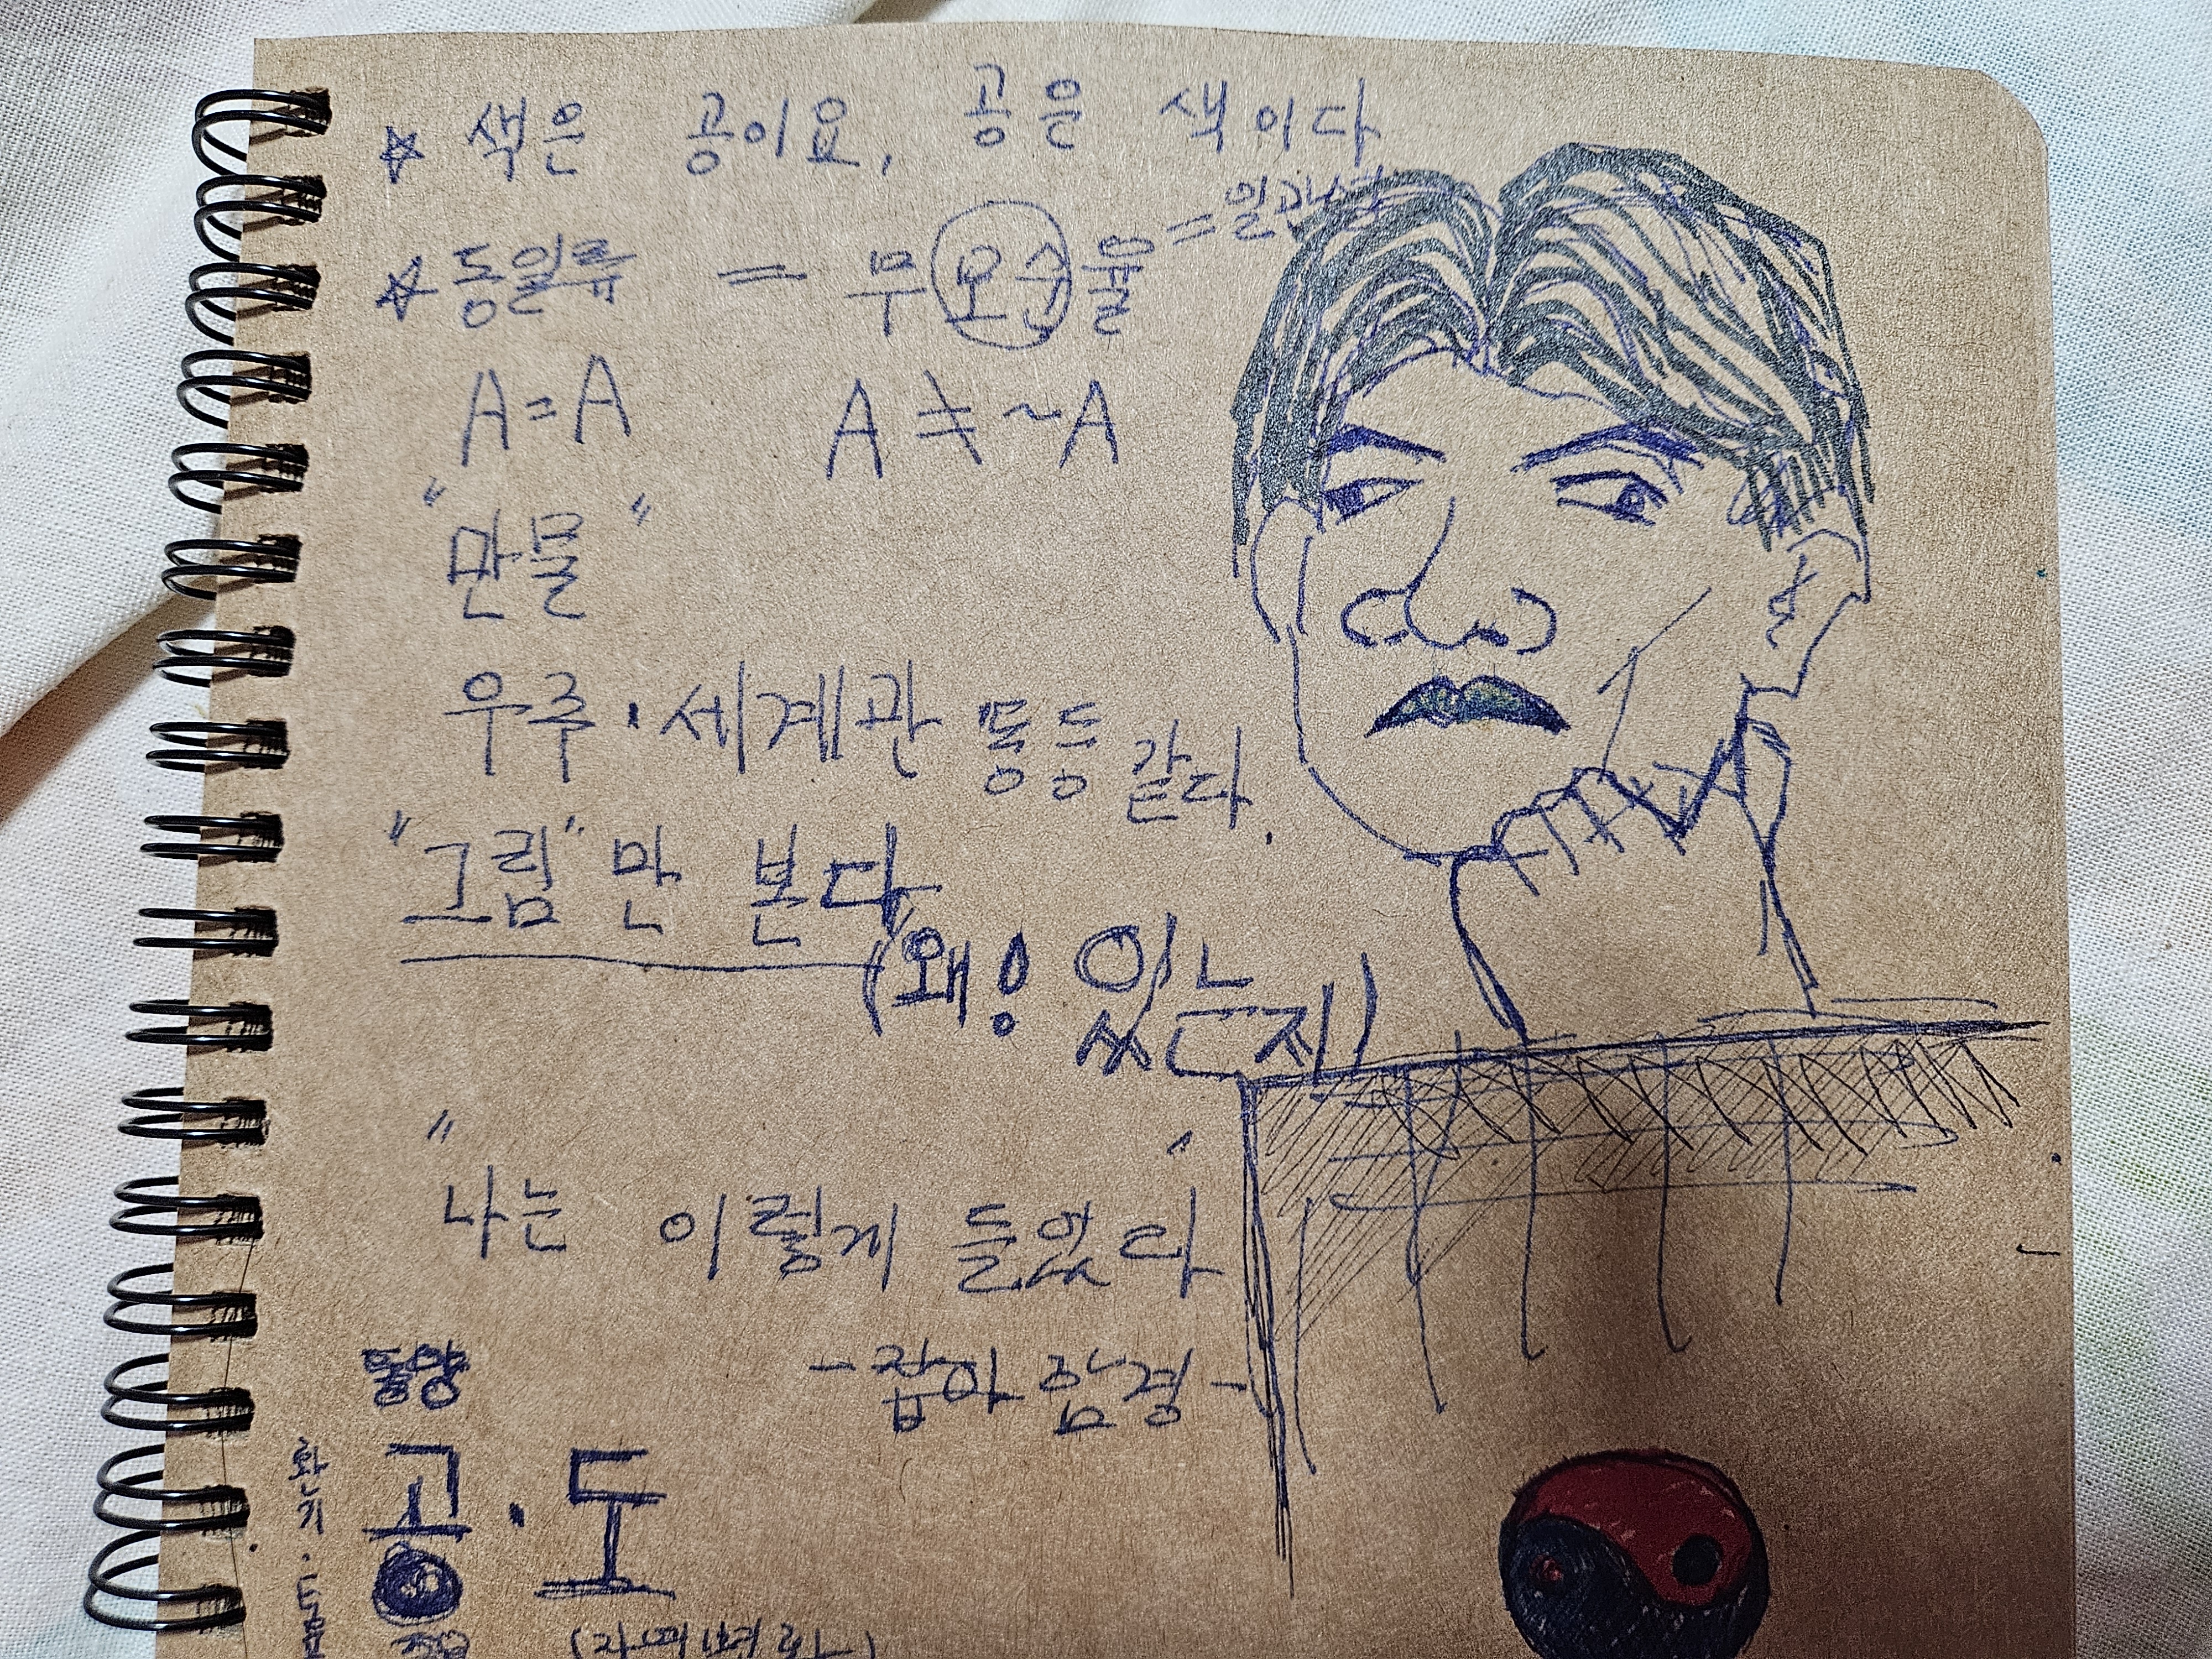 ☆ 색은 공이요, 공은 색이다
☆ 동일률 = 무모순율 = 일관성
A = A A ≠ ~A
"만물"
우주·세계관 동등 같다.
"그림"만 본다
(왜! 있는지)
"나는 이렇게 들었다"
-잡아함경-
동양
공·도